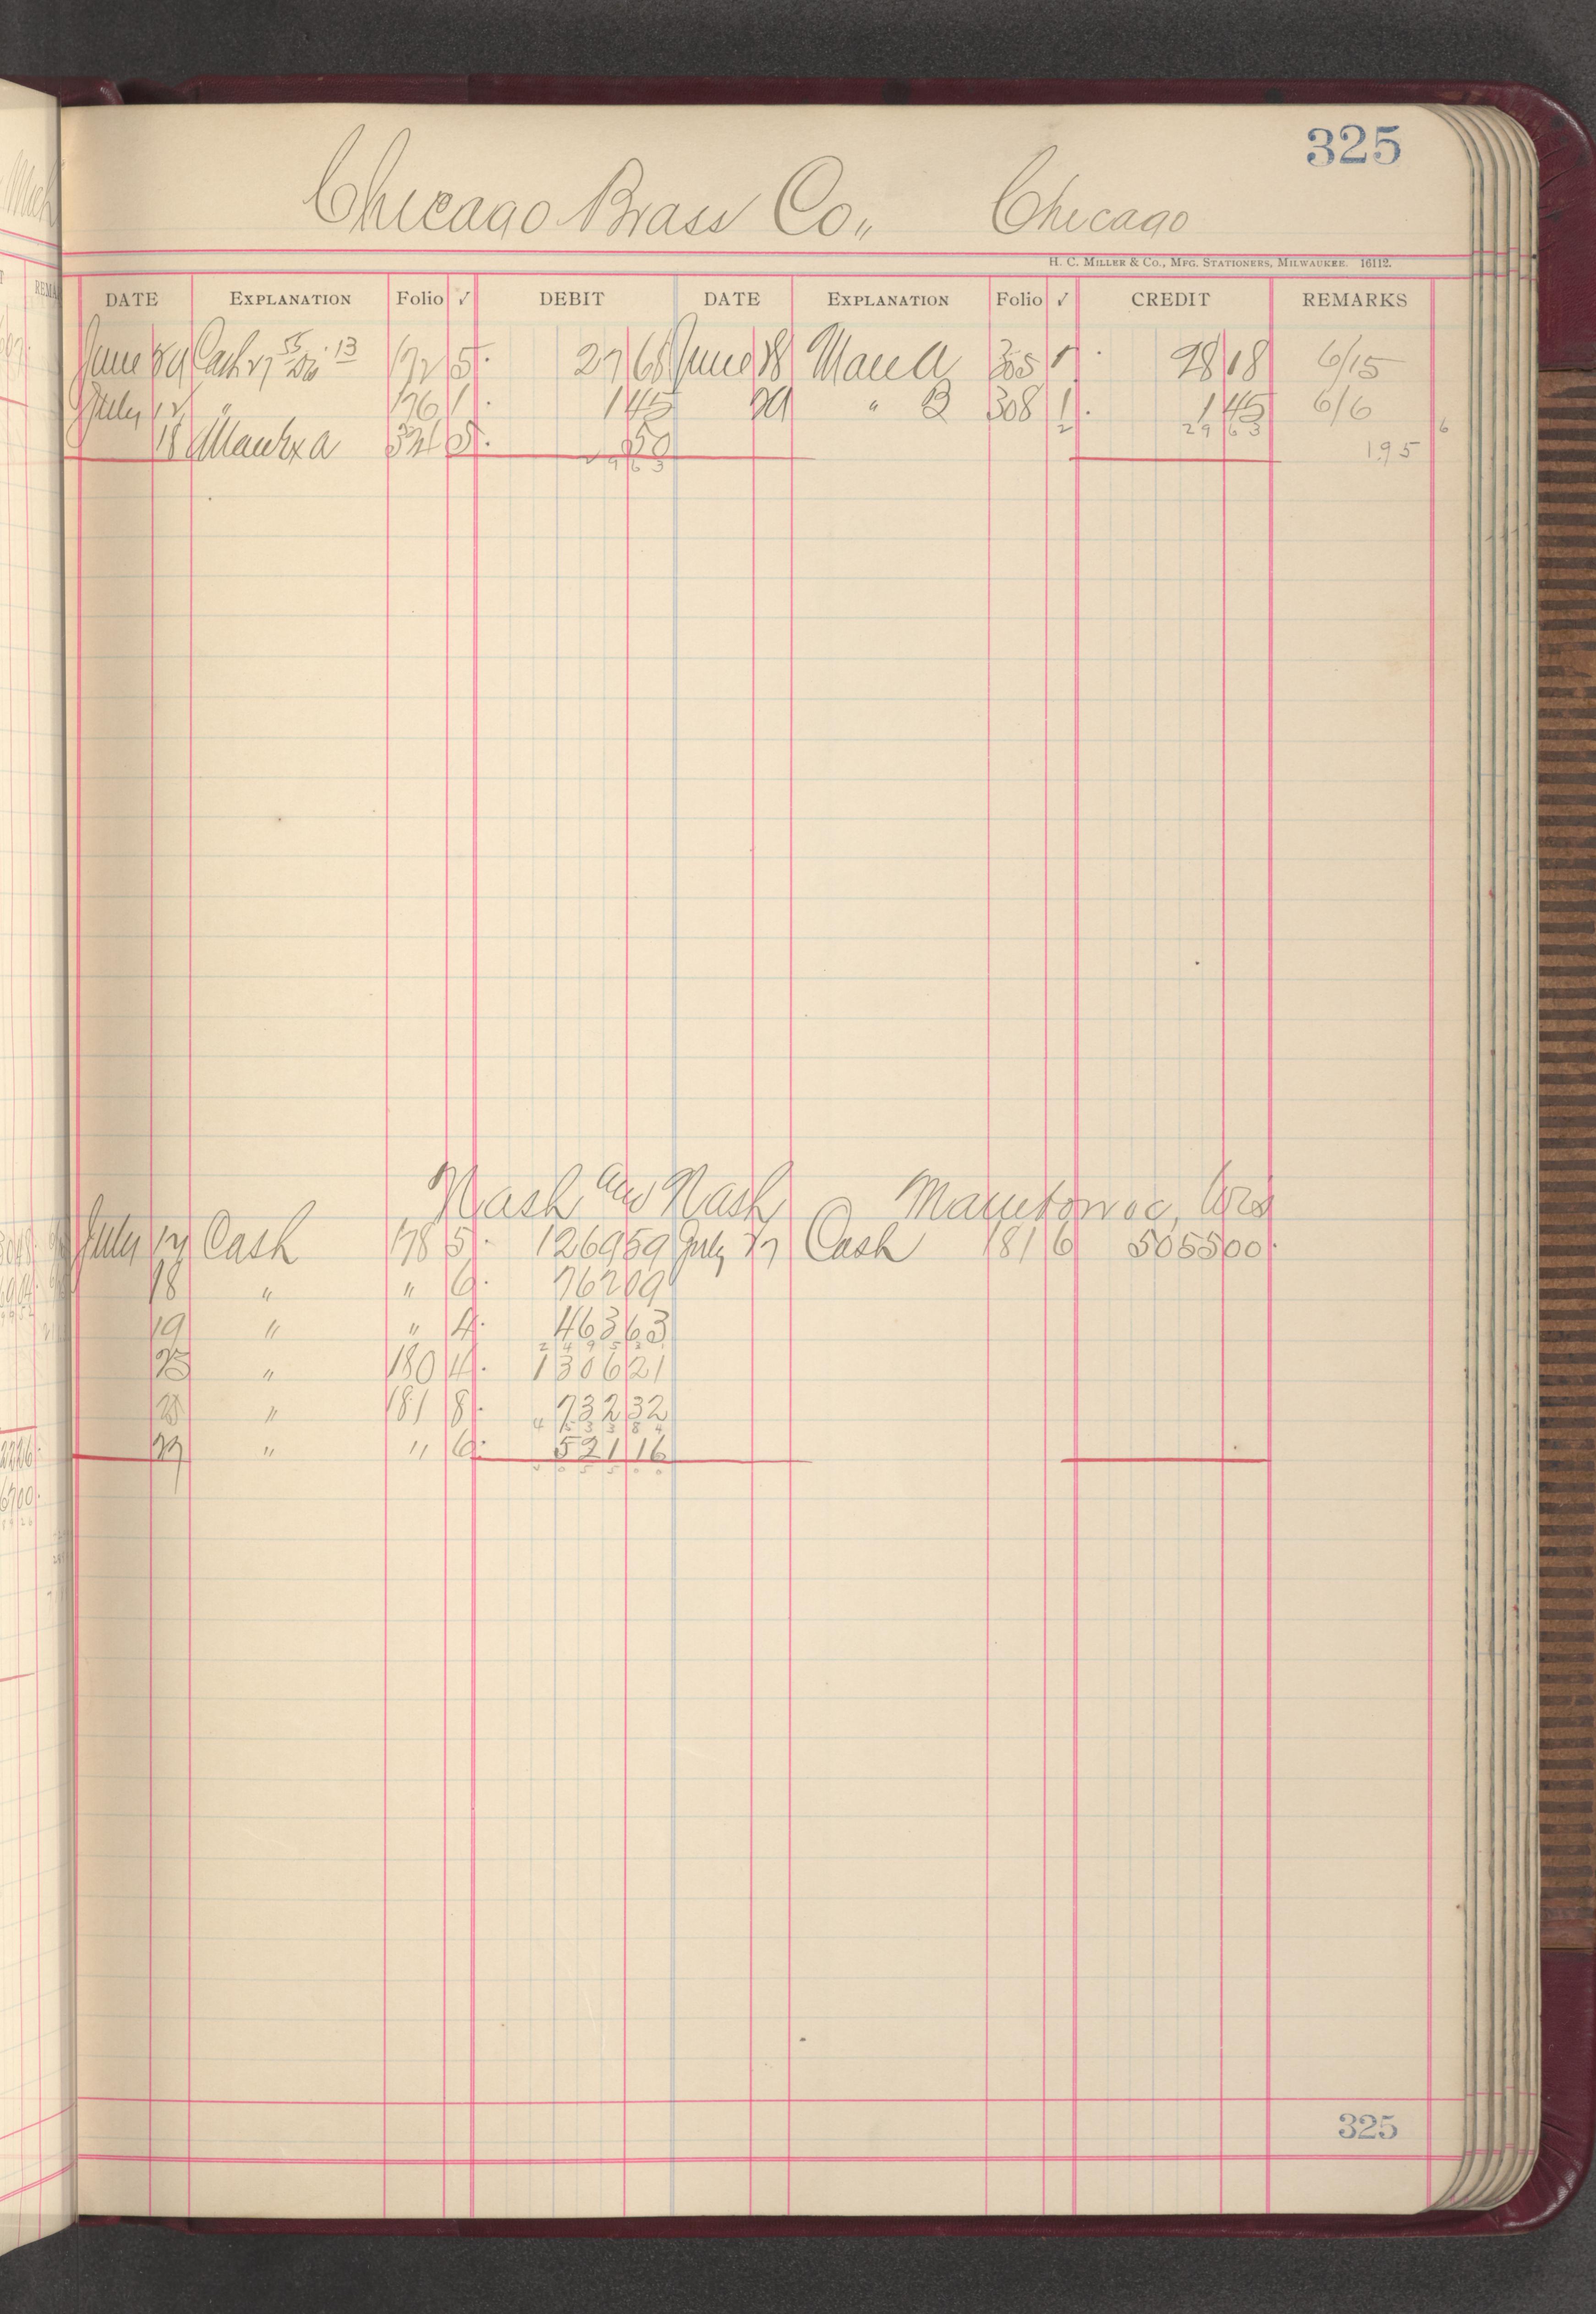 325
Chicago Brass Co,, Chicago
H. C. Miller & Co., Mfg. Stationers, Milwaukee. 16112.
DATE Explanation Folio √ DEBIT DATE Explanation Folio √ CREDIT REMARKS
June 29 Cash 27 55 Dis 13 172 5 27 68 June 28 305 1 28 18 6/15
July 12 " 176 1 1 45 29 " B 308 1 1 45 6/6
2 29 63 6
18 5 50 195
29 63
Nash and Nash Manitowoc, Wis
July 17 Cash 178 5 1269 59 July 27 Cash 181 6 5055 00
18 " " 6 762 09
19 " " 4 463 63
2 4 9 5
" 180 4 1306 21
" 181 8 732 32
4 5 3 3 8 4
27 " " 6 521 16
0 5 5 0 0
325